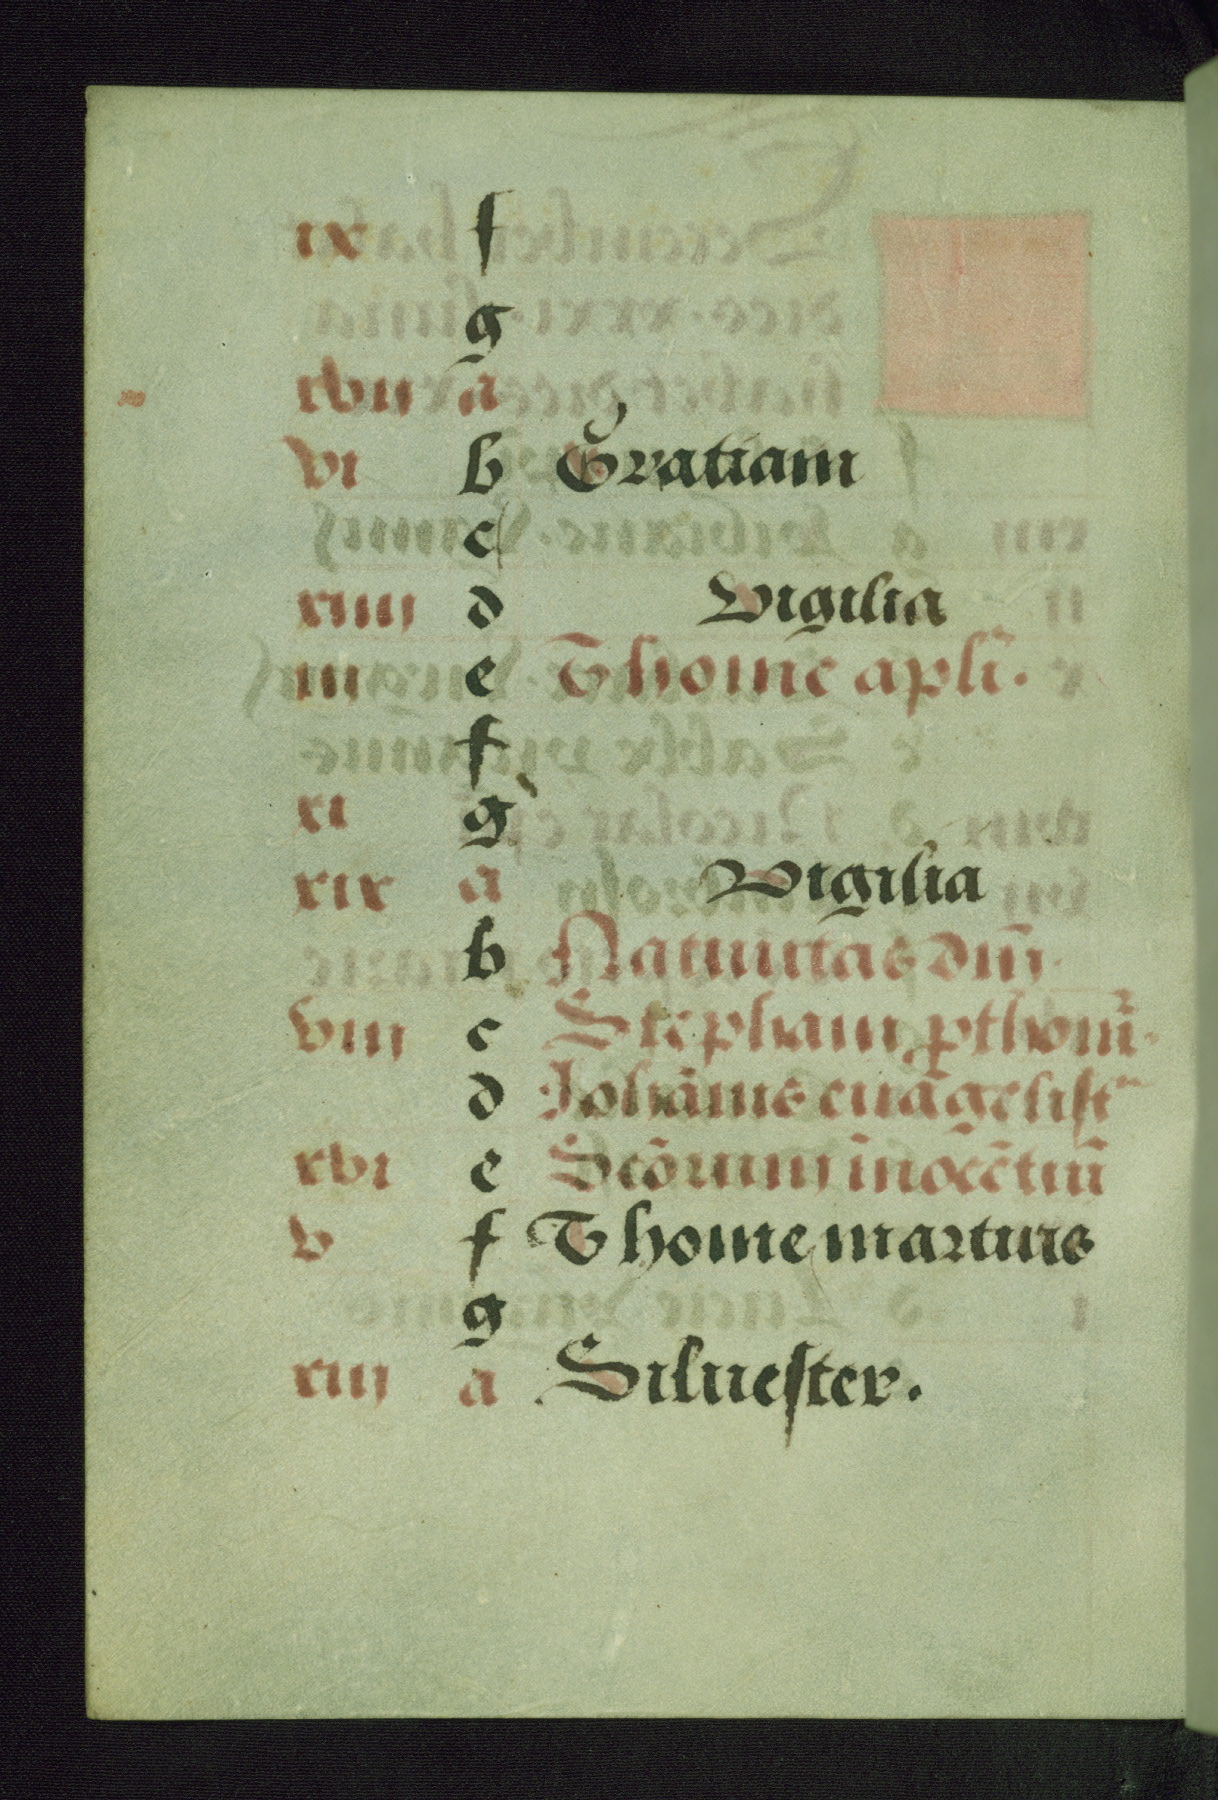 ix f
g
xvii a
vi b Gratiam
c
xiiii d Vigilia
iii e Thome apli.
f
xi g
xix a Vigilia
b Natiuitas dni
viii c Stephani pthom.
d Iohānis euāgelist
xvi e Scōrum inocētiū
v f Thome martiris
g
xiii a Siluester.